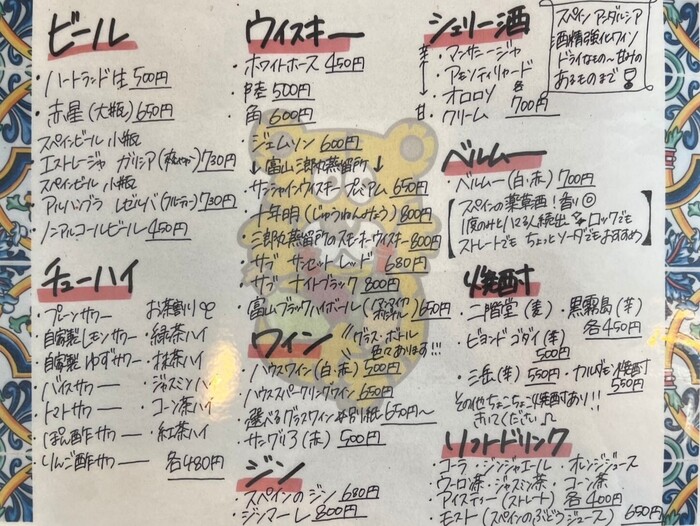 ビール
・ハートランド生 500円
・赤星(大瓶) 650円
スペインビール 小瓶
エストレージャ ガリシア 730円
スペインビール 小瓶
アルハンブラ レゼルバ 730円
・ノンアルコールビール 450円
チューハイ
・プレーンサワー
・自家製レモンサワー
・自家製ゆずサワー
・バイスサワー
・トマトサワー
・ぽん酢サワー
・りんご酢サワー
お茶割り
・緑茶ハイ
・抹茶ハイ
・ジャスミンハイ
・コーン茶ハイ
・紅茶ハイ
各480円
ウィスキー
・ホワイトホース 450円
・陸 500円
・角 600円
・ジェムソン 600円
↓富山 三郎丸蒸留所↓
・サンシャインウイスキープレミアム 650円
・十年明(じゅうねんみょう) 800円
・三郎丸蒸留所のスモーキーウイスキー 800円
・サブ サンセットレッド 680円
・サブ ナイトブラック 800円
・富山ブラックハイボール 650円
ワイン
グラス・ボトル
色々あります!!!
・ハウスワイン(白・赤) 500円
・ハウススパークリングワイン 650円
・選べるグラスワイン 別紙 650円〜
・サングリア(赤) 500円
ジン
・スペインのジン 680円
・ジンマーレ 800円
シェリー酒
辛 ・マンサニージャ
・アモンティリャード
・オロロソ
甘 ・クリーム
各 700円
スペイン アンダルシア
酒精強化ワイン
ドライなもの〜甘みの
あるものまで
ベルムー
・ベルムー(白・赤) 700円
スペインの薬草酒!香り◎
1度のむとハマる人続出 ロックでも
ストレートでも ちょっとソーダでもおすすめ
焼酎
・二階堂(麦) ・黒霧島(芋)
各450円
・ビヨンドゴダイ(芋)
500円
・三岳(芋) 550円 ・カルダモン焼酎
550円
その他ちょこちょこ焼酎あり!!
きいてください♫
ソフトドリンク
・コーラ ・ジンジャエール ・オレンジジュース
・ウーロン茶 ・ジャスミン茶 ・コーン茶
・アイスティー(ストレート) 各400円
・モスト(スペインのぶどうジュース) 650円